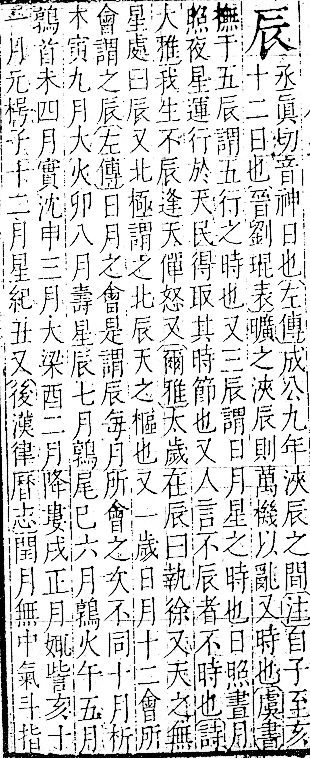 辰丞眞切音神日也左傳成公九年浹辰之間注自子至亥
十二日也晉劉琨表曠之浹辰則萬機以亂又時也虞書
撫于五辰謂五行之時也又三辰謂日月星之時也日照晝月
照夜星運行於天民得取其時節也又人言不辰者不時也詩
大雅我生不辰逢天僤怒又爾雅太歲在辰曰執徐又天之無
星處曰辰又北極謂之北辰天之樞也又一歲日月十二會所
會謂之辰左傳日月之會是謂辰每月所會之次不同十月析
木寅九月大火卯八月壽星辰七月鶉尾巳六月鶉火午五月
鶉首未四月實沈申三月大梁酉二月降婁戌正月娵訾亥十
一月元枵子十二月星紀丑又後漢律曆志閏月無中氣斗指